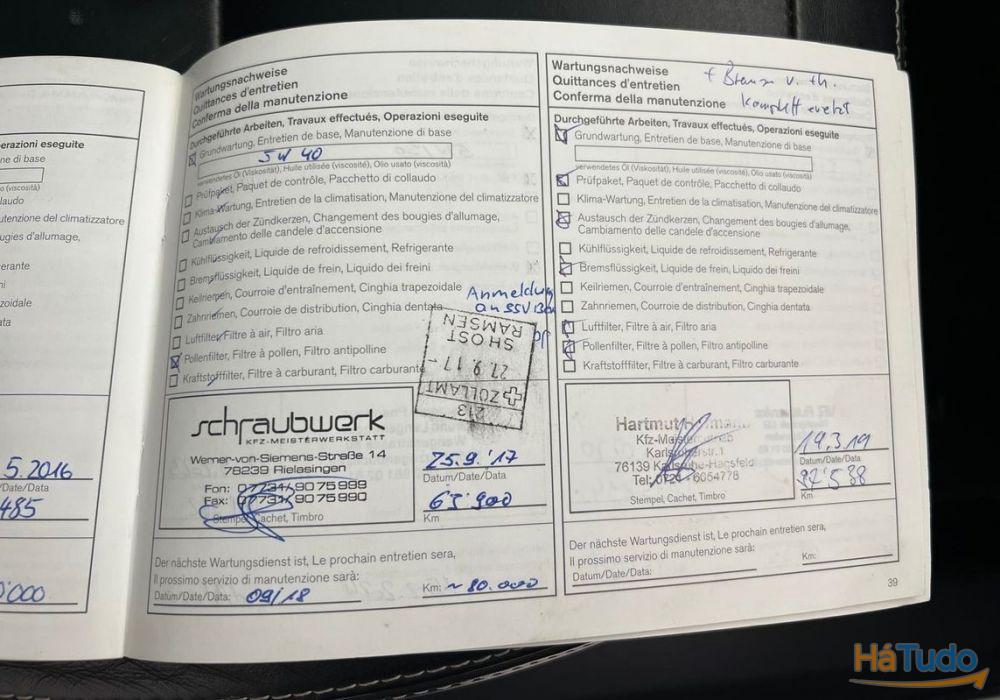 erazioni eseguite
ne di base
o (viscosità)
laudo
utenzione del climatizzatore
ugies d'allumage,
erante
ni
zoidale
ata
5.2016
/Date/Data
485
0'000
Wartungsnachweise
Quittances d'entretien
Conferma della manutenzione
Durchgeführte Arbeiten, Travaux effectués, Operazioni eseguite
Grundwartung, Entretien de base, Manutenzione di base
5W40
verwendetes Öl (Viskosität), Huile utilisée (viscosité), Olio usato (viscosità)
Prüfpaket, Paquet de contrôle, Pacchetto di collaudo
Klima-Wartung, Entretien de la climatisation, Manutenzione del climatizzatore
Austausch der Zündkerzen, Changement des bougies d'allumage,
Cambiamento delle candele d'accensione
Kühlflüssigkeit, Liquide de refroidissement, Refrigerante
Bremsflüssigkeit, Liquide de frein, Liquido dei freini
Keilriemen, Courroie d'entraînement, Cinghia trapezoidale
Zahnriemen, Courroie de distribution, Cinghia dentata
Luftfilter, Filtre à air, Filtro aria
Pollenfilter, Filtre à pollen, Filtro antipolline
Kraftstofffilter, Filtre à carburant, Filtro carburante
Anmeldung
213
ZOLLAMT
27. 9. 17
SH OST
RAMSEN
schraubwerk
KFZ-MEISTERWERKSTATT
Werner-von-Siemens-Straße 14
78239 Rielasingen
Fon: 07731/90 75 989
Fax: 07731/90 75 990
Stempel, Cachet, Timbro
25.9.'17
Datum/Date/Data
63'900
Km
Der nächste Wartungsdienst ist, Le prochain entretien sera,
Il prossimo servizio di manutenzione sarà:
Datum/Date/Data: 09/18
Km: ~ 80.000
Wartungsnachweise
Quittances d'entretien
Conferma della manutenzione
+ Bremse v. + h.
komplett ersetzt
Durchgeführte Arbeiten, Travaux effectués, Operazioni eseguite
Grundwartung, Entretien de base, Manutenzione di base
verwendetes Öl (Viskosität), Huile utilisée (viscosité), Olio usato (viscosità)
Prüfpaket, Paquet de contrôle, Pacchetto di collaudo
Klima-Wartung, Entretien de la climatisation, Manutenzione del climatizzatore
Austausch der Zündkerzen, Changement des bougies d'allumage,
Cambiamento delle candele d'accensione
Kühlflüssigkeit, Liquide de refroidissement, Refrigerante
Bremsflüssigkeit, Liquide de frein, Liquido dei freini
Keilriemen, Courroie d'entraînement, Cinghia trapezoidale
Zahnriemen, Courroie de distribution, Cinghia dentata
Luftfilter, Filtre à air, Filtro aria
Pollenfilter, Filtre à pollen, Filtro antipolline
Kraftstofffilter, Filtre à carburant, Filtro carburante
Hartmut
76139
Stempel, Cachet, Timbro
19.3.19
Datum/Date/Data
92'588
Km
Der nächste Wartungsdienst ist, Le prochain entretien sera,
Il prossimo servizio di manutenzione sarà:
Datum/Date/Data:
Km:
39
HáTudo